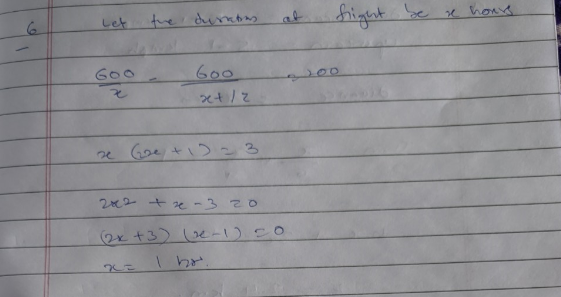 6 Let the duration of flight be x hours
600/x - 600/x+1/2 = 200
x (2x + 1) = 3
2x2 + x - 3 = 0
(2x + 3) (x - 1) = 0
x = 1 hr.